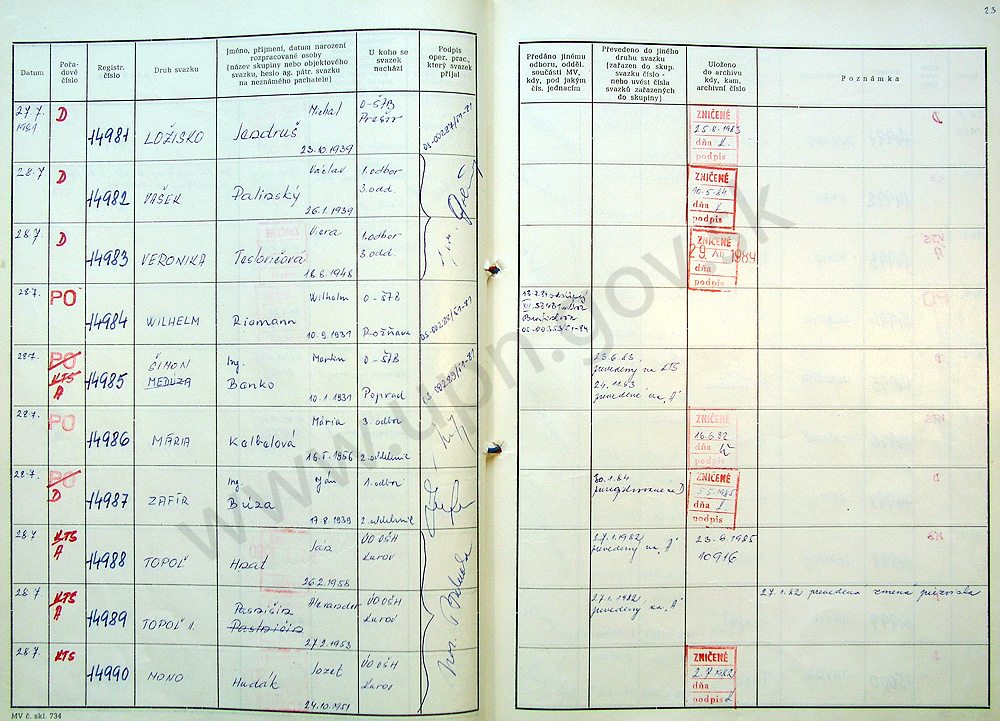 23
Datum
Pořa-
dové
číslo
Registr.
číslo
Druh svazku
Jméno, příjmení, datum narození
rozpracované osoby
(název skupiny nebo objektového
svazku, heslo ag. pátr. svazku
na neznámého pachatele)
U koho se
svazek
nachází
Podpis
oper. prac.,
který svazek
přijal
Předáno jinému
odboru, odděl.
součásti MV,
kdy, pod jakým
čís. jednacím
Převedeno do jiného
druhu svazku
(zařazen do skup.
svazku číslo -
nebo uvést čísla
svazků zařazených
do skupiny)
Uloženo
do archívu
kdy, kam,
archivní číslo
Poznámka
27.7.
1981
D
14981
LOŽISKO
Michal
Jendruš
23.10.1939
O-ŠtB
Prešov
ZNIČENÉ
25.8.1983
dňa
podpis
28.7
D
14982
VAŠEK
Václav
Palinský
26.1.1939
1. odbor
3. odd.
ZNIČENÉ
10.5.84
dňa
podpis
28.7
D
14983
VERONIKA
Viera
16.8.1948
1. odbor
3. odd.
ZNIČENÉ
29. XII. 1984
dňa
podpis
28.7.
PO
14984
WILHELM
Wilhelm
Riemann
10.9.1931
O-ŠtB
Rožňava
28.7.
PO
KTS
A
14985
ŠIMON
MEDUZA
Ing. Martin
Banko
10.1.1931
O-ŠtB
Poprad
23.6.83,
prevedený na KTS
24.11.83
prevedené na "A"
28.7.
PO
14986
MÁRIA
Mária
Kalbalová
16.5.1956
3. odbor
2. oddelenie
ZNIČENÉ
16.6.82
dňa
podpis
28.7.
PO
D
14987
ZAFÍR
Ing. Ján
Búza
17.8.1939
1. odbor
2. oddelenie
ZNIČENÉ
5.5.1985
dňa
podpis
28.7
KTS
A
14988
TOPOĽ
Ján
Hnat
26.2.1958
ÚO OŠH
Kurov
27.1.1982
prevedený na "A"
23.9.1985
10916
28.7
KTS
A
14989
TOPOĽ II.
Alexander
27.2.1953
ÚO OŠH
Kurov
27.1.1982
prevedený na "A"
27.1.82 prevedena zmena
28.7.
KTS
14990
MONO
Jozef
Hudák
24.10.1951
ÚO OŠH
Kurov
ZNIČENÉ
2.7.1982
dňa
podpis
MV č. skl. 734
www.upn.gov.sk